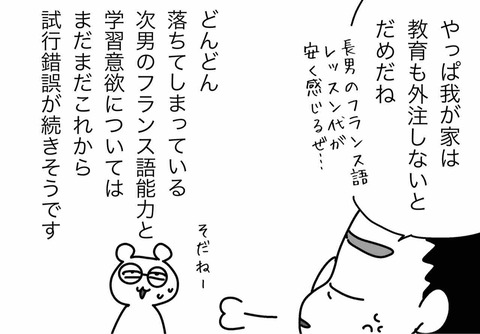 やっぱ我が家は
教育も外注しないと
だめだね
長男のフランス語
レッスン代が
安く感じるぜ…
そだねー
どんどん
落ちてしまっている
次男のフランス語能力と
学習意欲については
まだまだこれから
試行錯誤が続きそうです